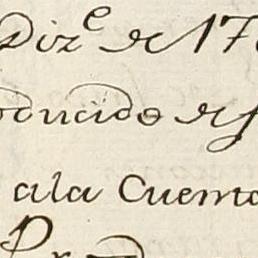 Dizᵉ de 17
oducido de
ala Cuenta